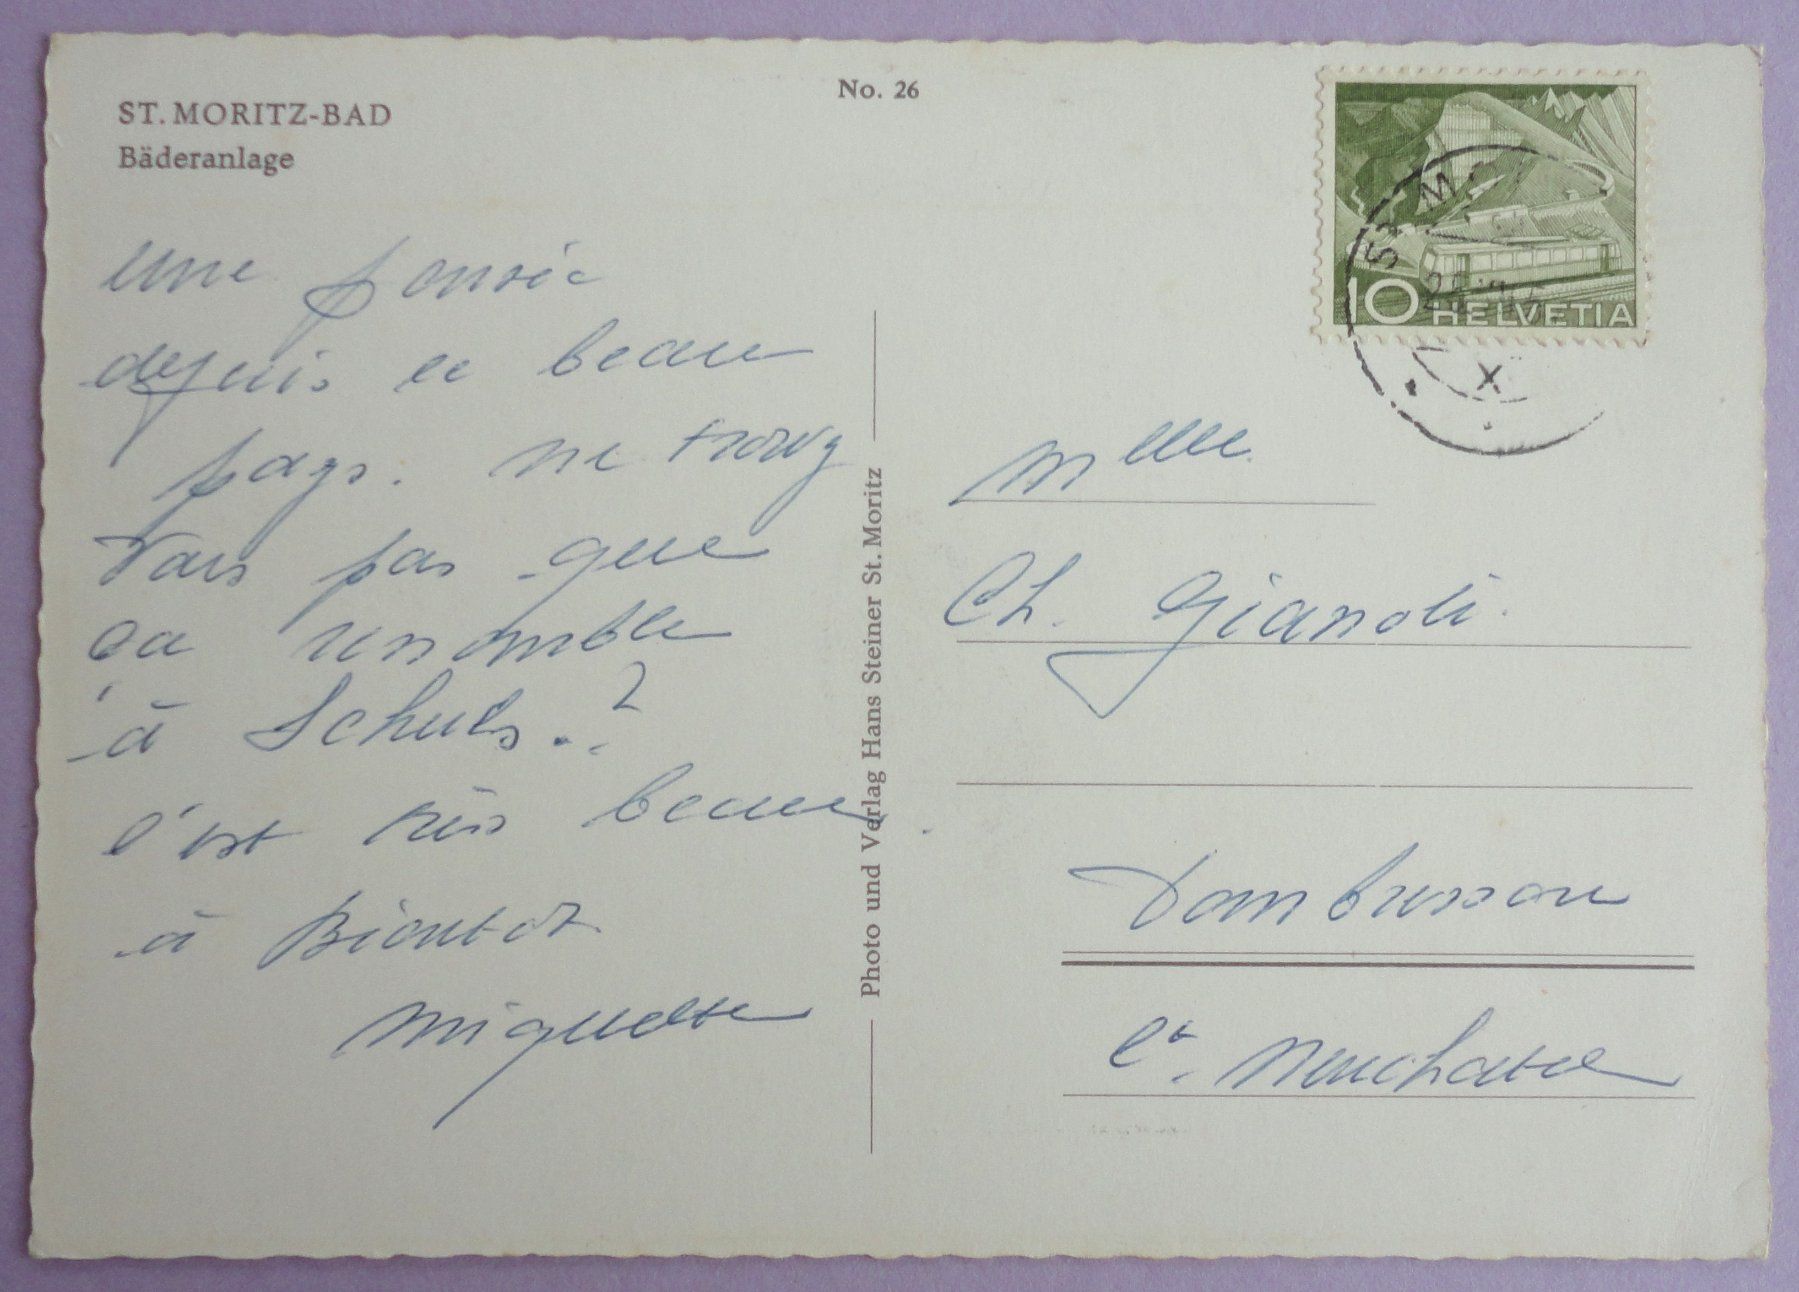 ST. MORITZ-BAD
Bäderanlage
No. 26
HELVETIA
10
ST. M
une pensée
depuis ce beau
pays. ne trouvez
vous pas que
ça ressemble
à Schuls.?
c'est très beau.
à Bientot
Miquette
Photo und Verlag Hans Steiner St. Moritz
Mlle
Ch. Gianoli.
Dombresson
Ct. Neuchatel